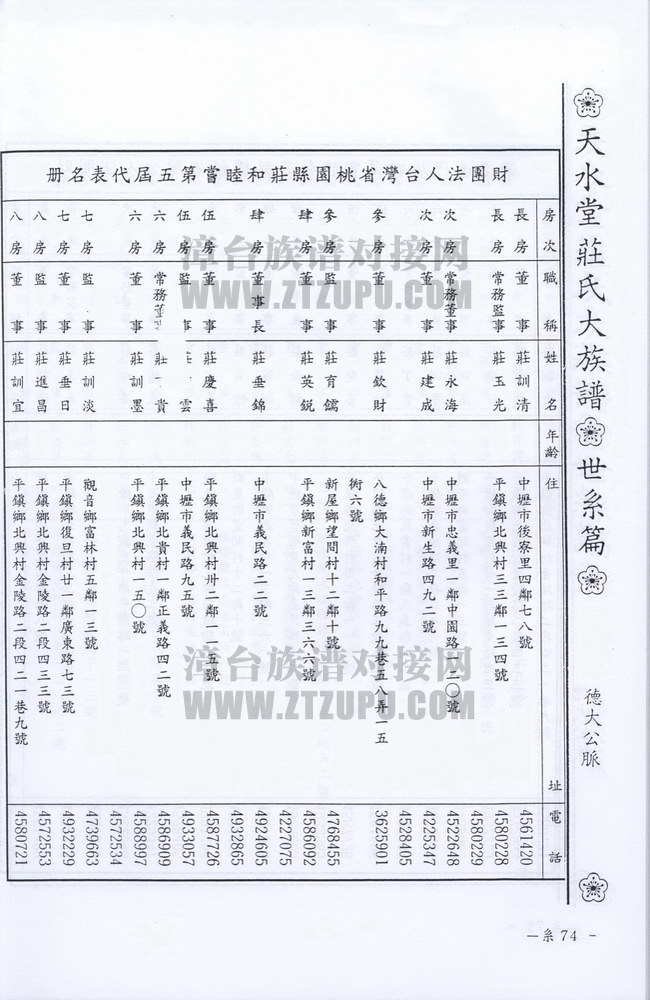 天水堂莊氏大族譜 世系篇
德大公脈
財團法人台灣省桃園縣莊和睦嘗第五屆代表名册
房次 職稱 姓名 年齡 住址 電話
長房 董事 莊訓清 中壢市後寮里四鄰七八號 4561420
長房 常務監事 莊玉光 平鎮鄉北興村三三鄰一三四號 4580228
4580229
次房 常務董事 莊永海 中壢市忠義里一鄰中園路一二〇號 4522648
次房 董事 莊建成 中壢市新生路四九二號 4225347
4528405
參房 董事 莊欽財 八德鄉大湳村和平路九九巷五八弄一五
街六號 3625901
參房 監事 莊育鑐 新屋鄉望間村十二鄰十號 4768455
肆房 董事 莊英銳 平鎮鄉新富村一三鄰三六六號 4586092
4227075
肆房 董事長 莊垂錦 中壢市義民路二二號 4924605
4932865
伍房 董事 莊慶喜 平鎮鄉北興村卅二鄰一一五號 4587726
伍房 監事 雲 中壢市義民路九五號 4933057
六房 常務董 莊 貴 平鎮鄉北貴村一鄰正義路四二號 4586909
六房 董事 莊訓墨 平鎮鄉北興村一五〇號 4588997
4572534
七房 監事 莊訓淡 觀音鄉富林村五鄰一三號 4739663
七房 董事 莊垂日 平鎮鄉復旦村廿一鄰廣東路七三號 4932229
八房 監事 莊進昌 平鎮鄉北興村金陵路二段四三三號 4572553
八房 董事 莊訓宜 平鎮鄉北興村金陵路二段四二一巷九號 4580721
漳台族谱对接网
WWW.ZTZUPU.COM
漳台族谱对接网
WWW.ZTZUPU.COM
—系 74 -